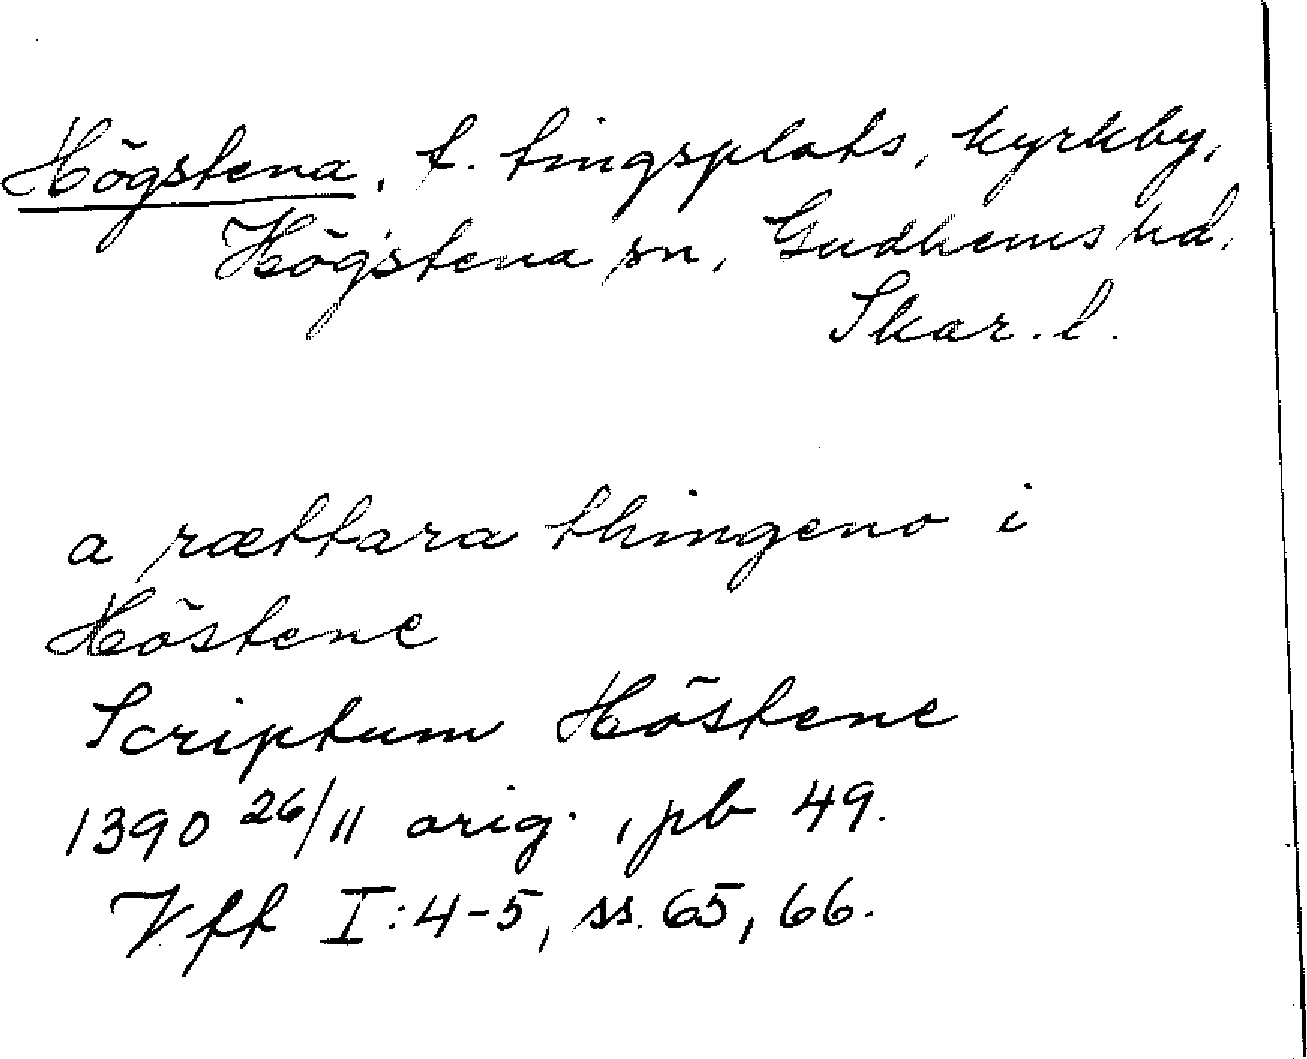 Högstena, t. tingsplats, kyrkby,
Högstena sn, Gudhems hd,
Skar. l.
a rættara thingeno i
Höstene
Scriptum Höstene
1390 26/11 orig., pb 49.
Vft I:4-5, ss. 65, 66.